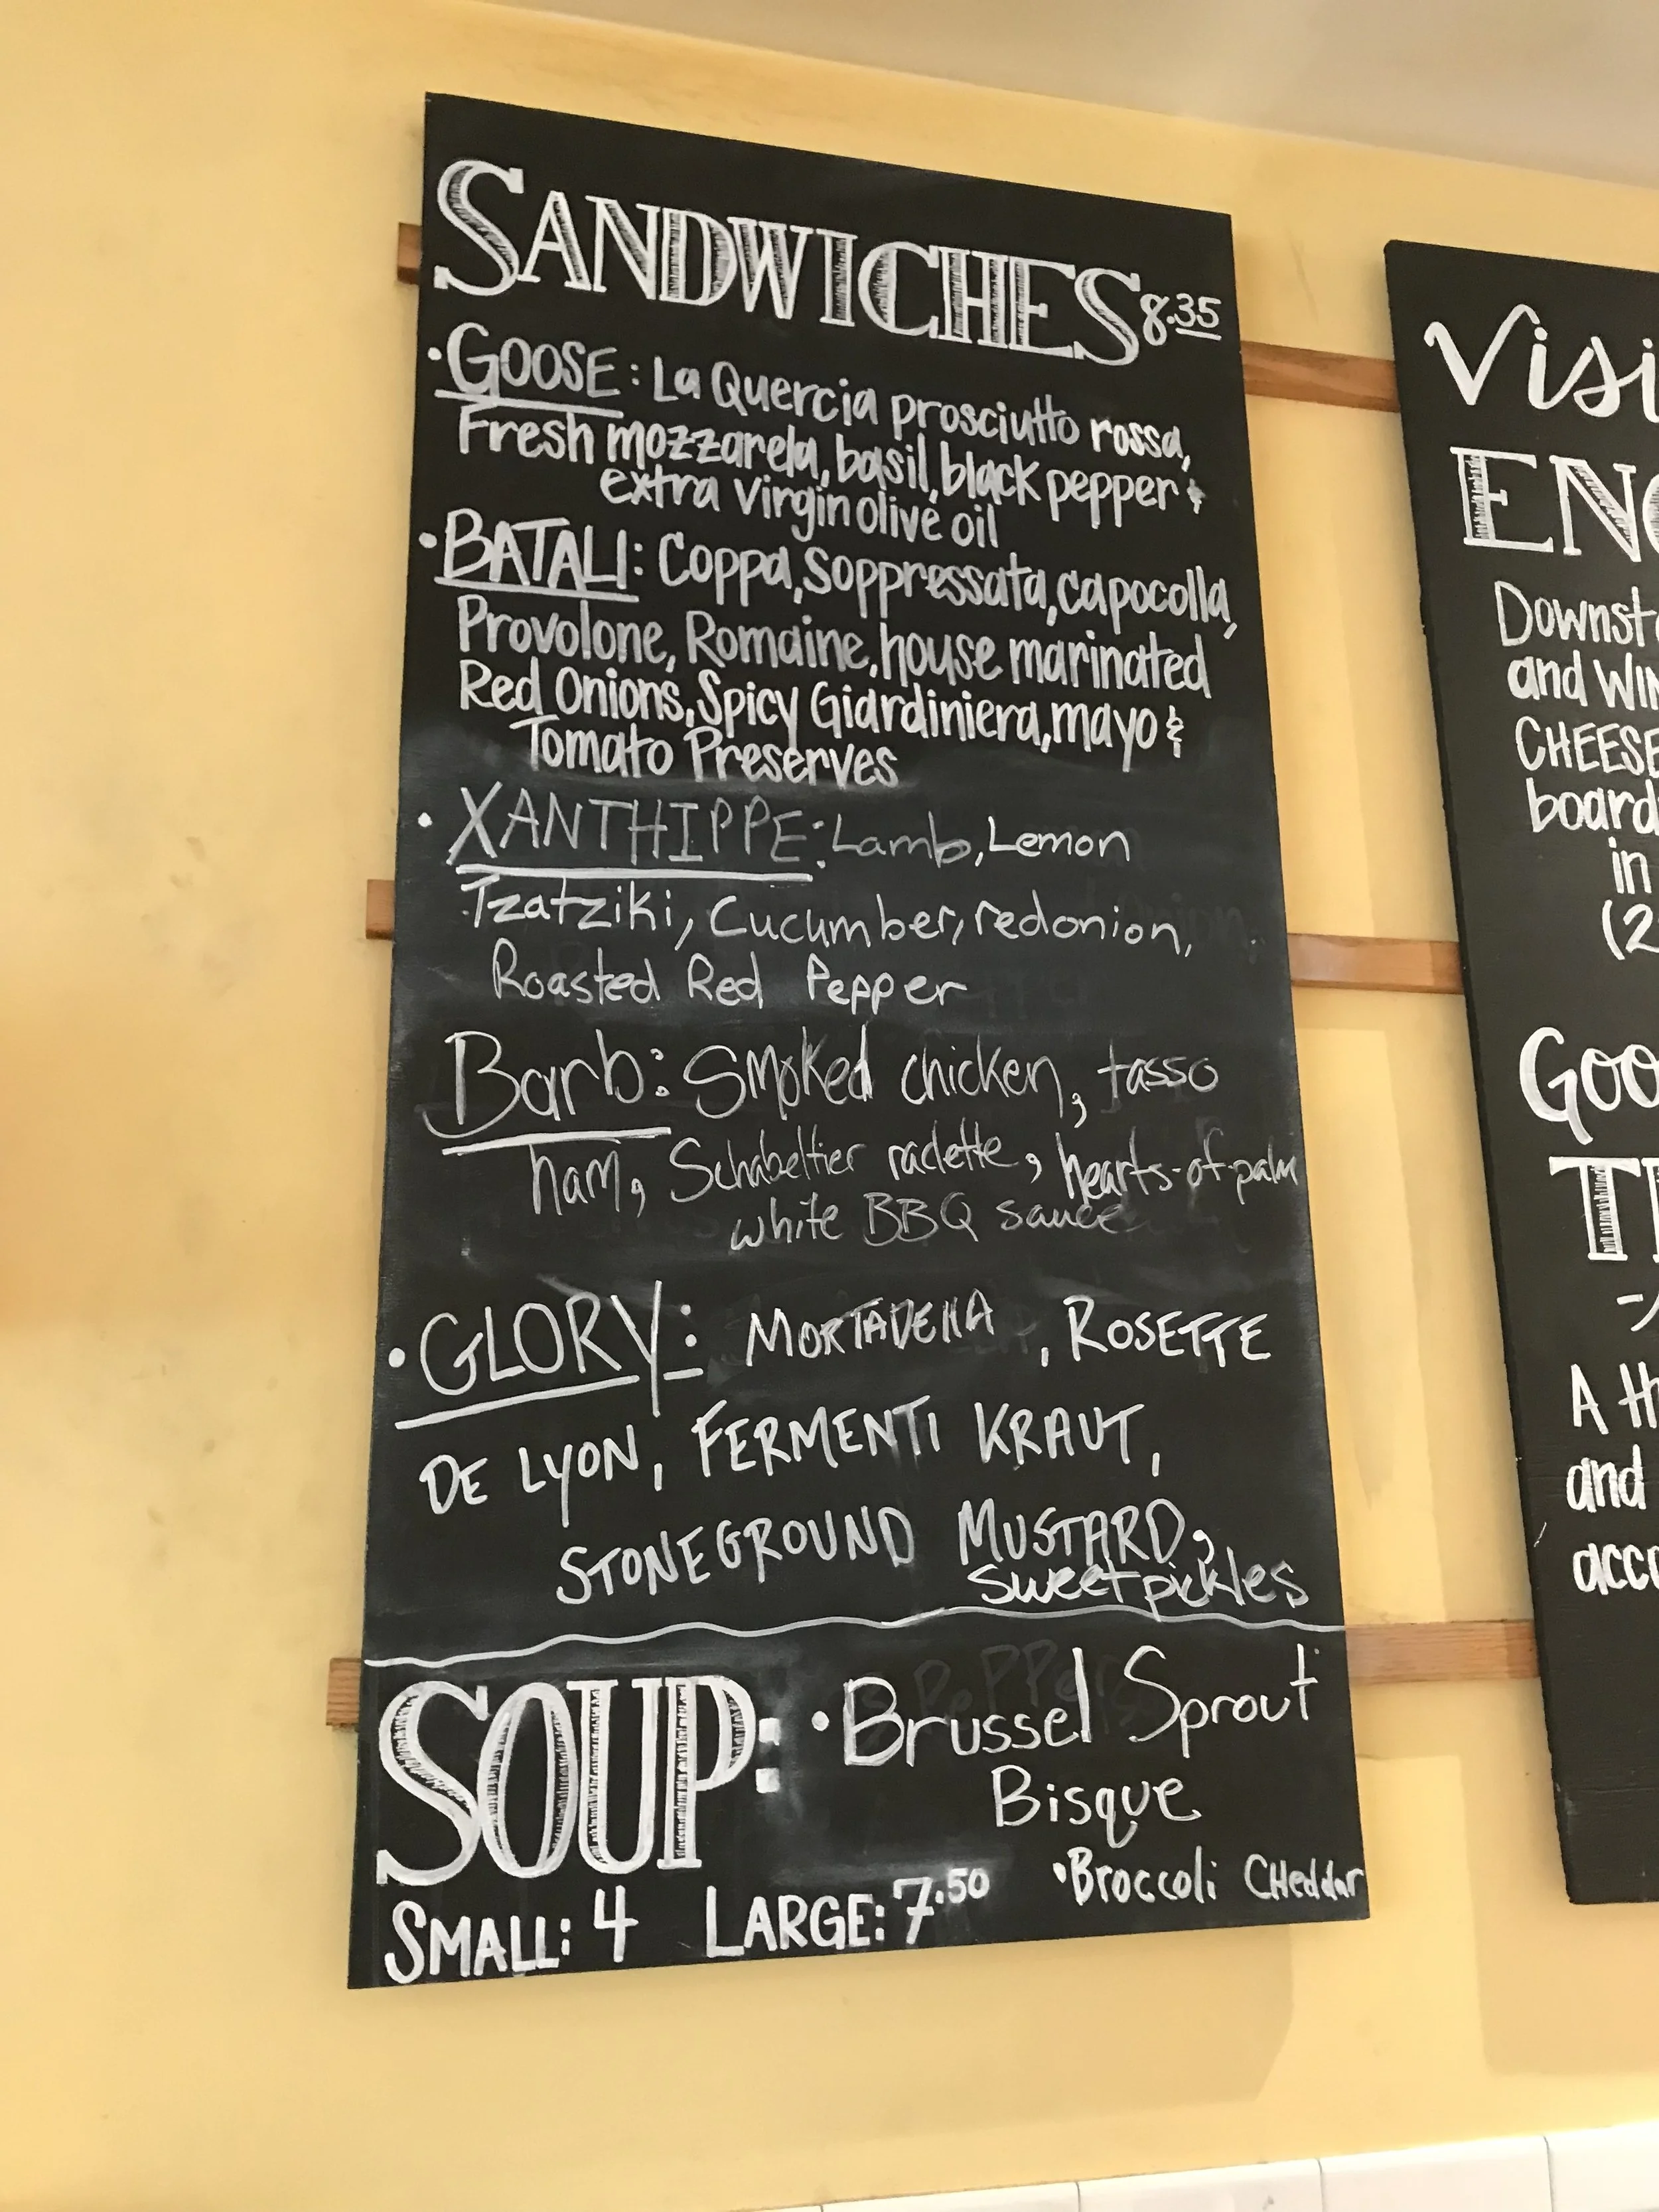 SANDWICHES 8.35
• GOOSE: La Quercia prosciutto rossa,
Fresh mozzarela, basil, black pepper &
extra virgin olive oil
• BATALI: Coppa, Soppressata, capocolla,
Provolone, Romaine, house marinated
Red Onions, Spicy Giardiniera, mayo &
Tomato Preserves
• XANTHIPPE: Lamb, Lemon
Tzatziki, Cucumber, red onion,
Roasted Red Pepper
Barb: Smoked chicken, tasso
ham, Schabeltier raclette, hearts-of-palm
white BBQ sauce
• GLORY: MORTADELLA, ROSETTE
DE LYON, FERMENTI KRAUT,
STONEGROUND MUSTARD,
sweet pickles
SOUP: • Brussel Sprout
Bisque
• Broccoli CHeddar
SMALL: 4 LARGE: 7.50
Visi
ENO
Downsta
and WIN
CHEESE
board
in
(2
Goo
A th
and
acco